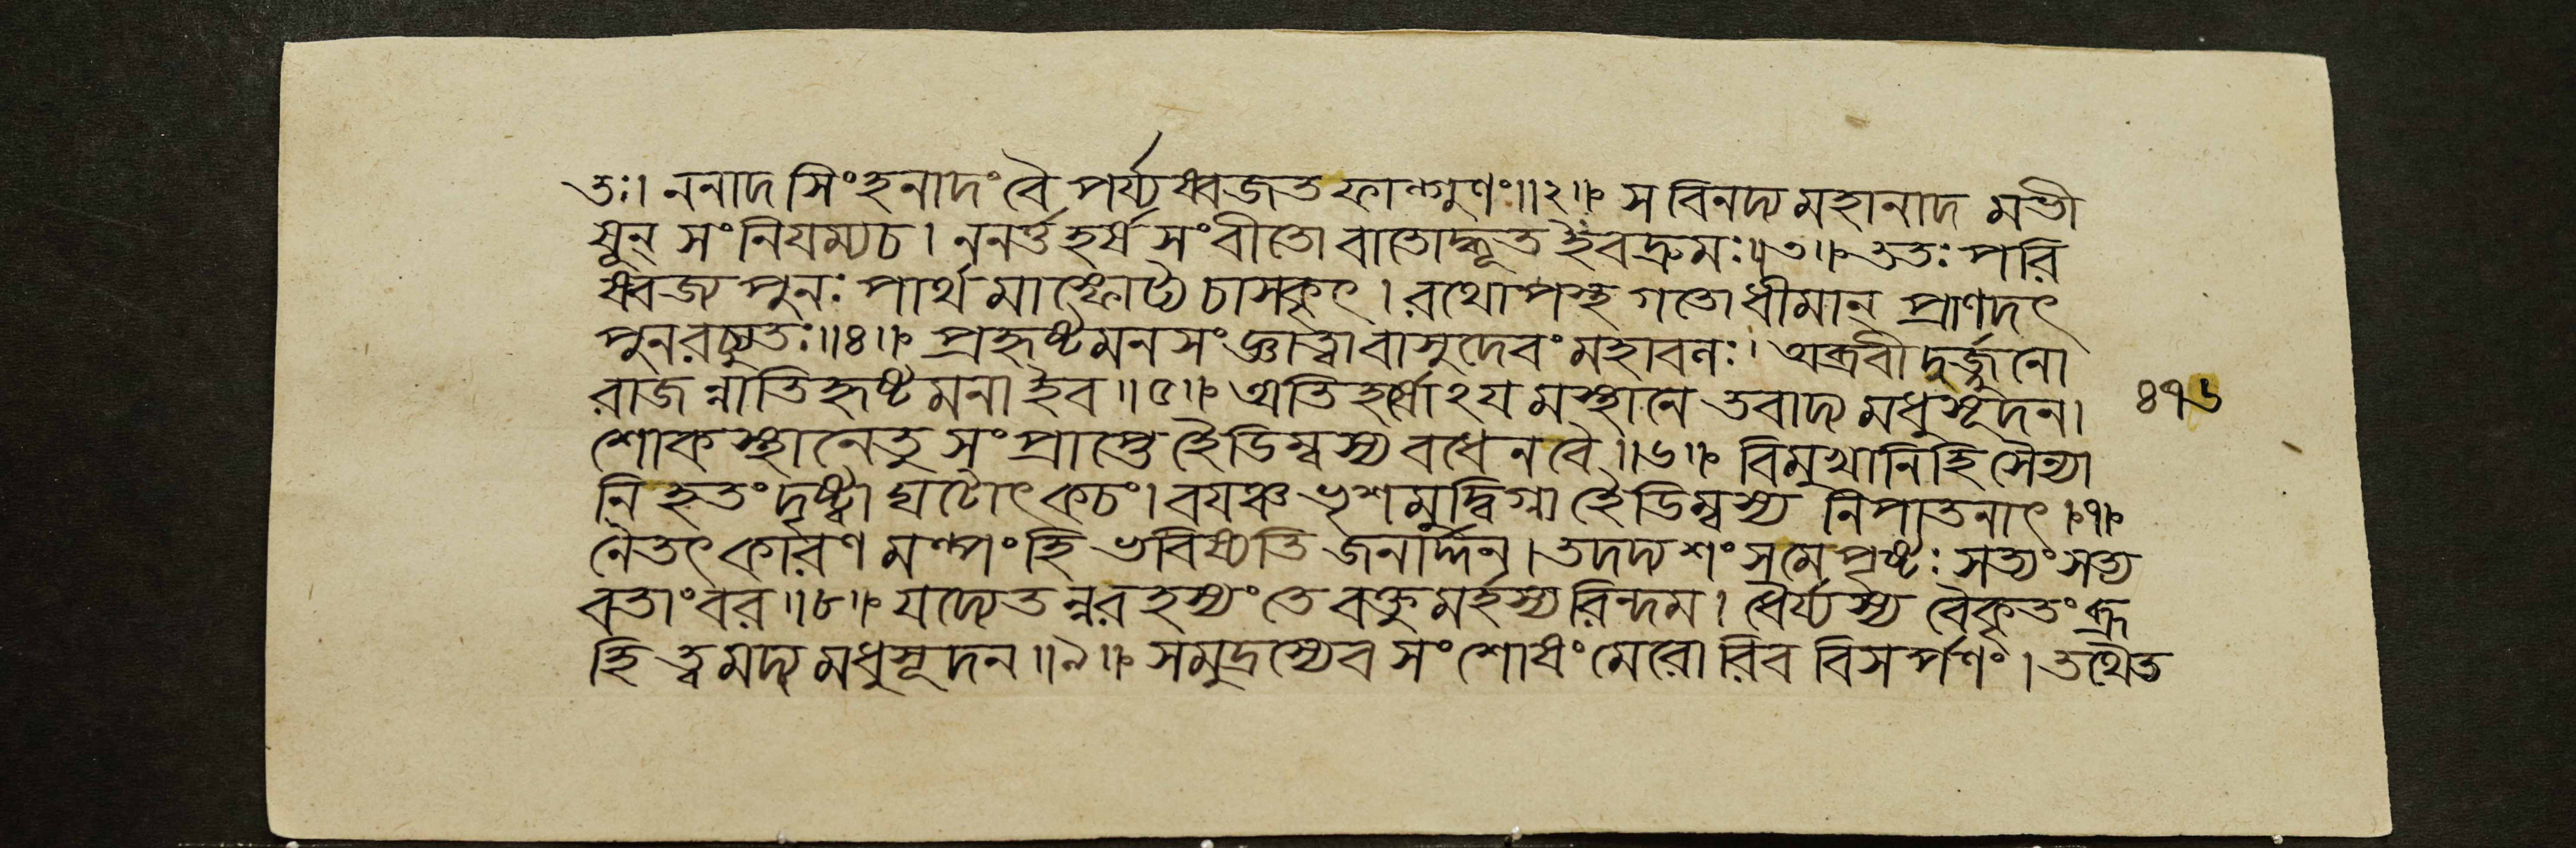 তঃ। ননাদ সিংহনাদং বৈ পর্য্যষ্বজত ফাল্গুণং॥২॥ স বিনদ্য মহানাদ মভী
ষূন্ সংনিযম্য চ। ননর্ত্ত হর্ষসংবীতো বাতোদ্ধূত ইব দ্রুমঃ॥৩॥ ততঃ পরি
ষ্বজ্য পুনঃ পার্থ মাস্ফোট্য চাসকৃৎ। রথোপস্থ গতো ধীমান্ প্রাণদৎ
পুনরচ্যুতঃ॥৪॥ প্রহৃষ্টমনসং জ্ঞাত্বা বাসুদেবং মহাবলঃ। অব্রবীদর্জুনো
রাজন্নাতিহৃষ্টমনা ইব॥৫॥ অতিহর্ষোঽয মস্থানে তবাদ্য মধুসূদন।
শোকস্থানে তু সংপ্রাপ্তে হৈডিম্বস্য বধেন বৈ॥৬॥ বিমুখানি হি সৈন্যা
নি হতং দৃষ্ট্বা ঘটোৎকচং। বযঞ্চ ভৃশমুদ্বিগ্না হৈডিম্বস্য নিপাতনাৎ॥৭॥
নৈতৎ কারণ মল্পং হি ভবিষ্যতি জনার্দ্দন। তদদ্য শংস মে পৃষ্টঃ সত্যং সত্য
বতাং বর॥৮॥ যদ্যেতন্নরহস্যং তে বক্তুমর্হস্যরিন্দম। ধৈর্য্যস্য বৈকৃতং ব্রূ
হি ত্বমদ্য মধুসূদন॥৯॥ সমুদ্রস্যেব সংশোষং মেরোরিব বিসর্পণং। তথৈত
৪৭৬